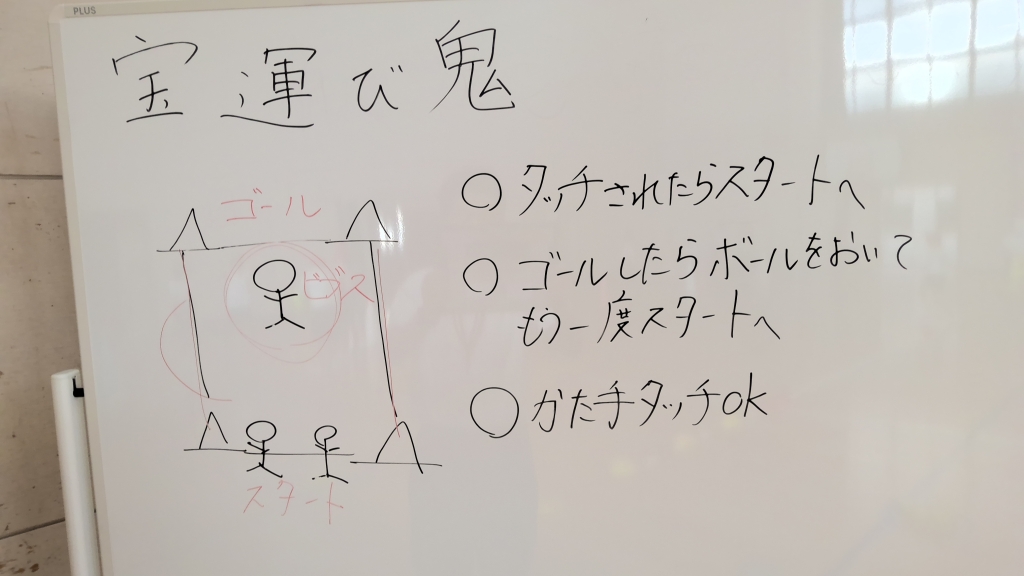 PLUS
宝運び鬼
ゴール
ビブス
スタート
○タッチされたらスタートへ
○ゴールしたらボールをおいて
もう一度スタートへ
○かた手タッチok